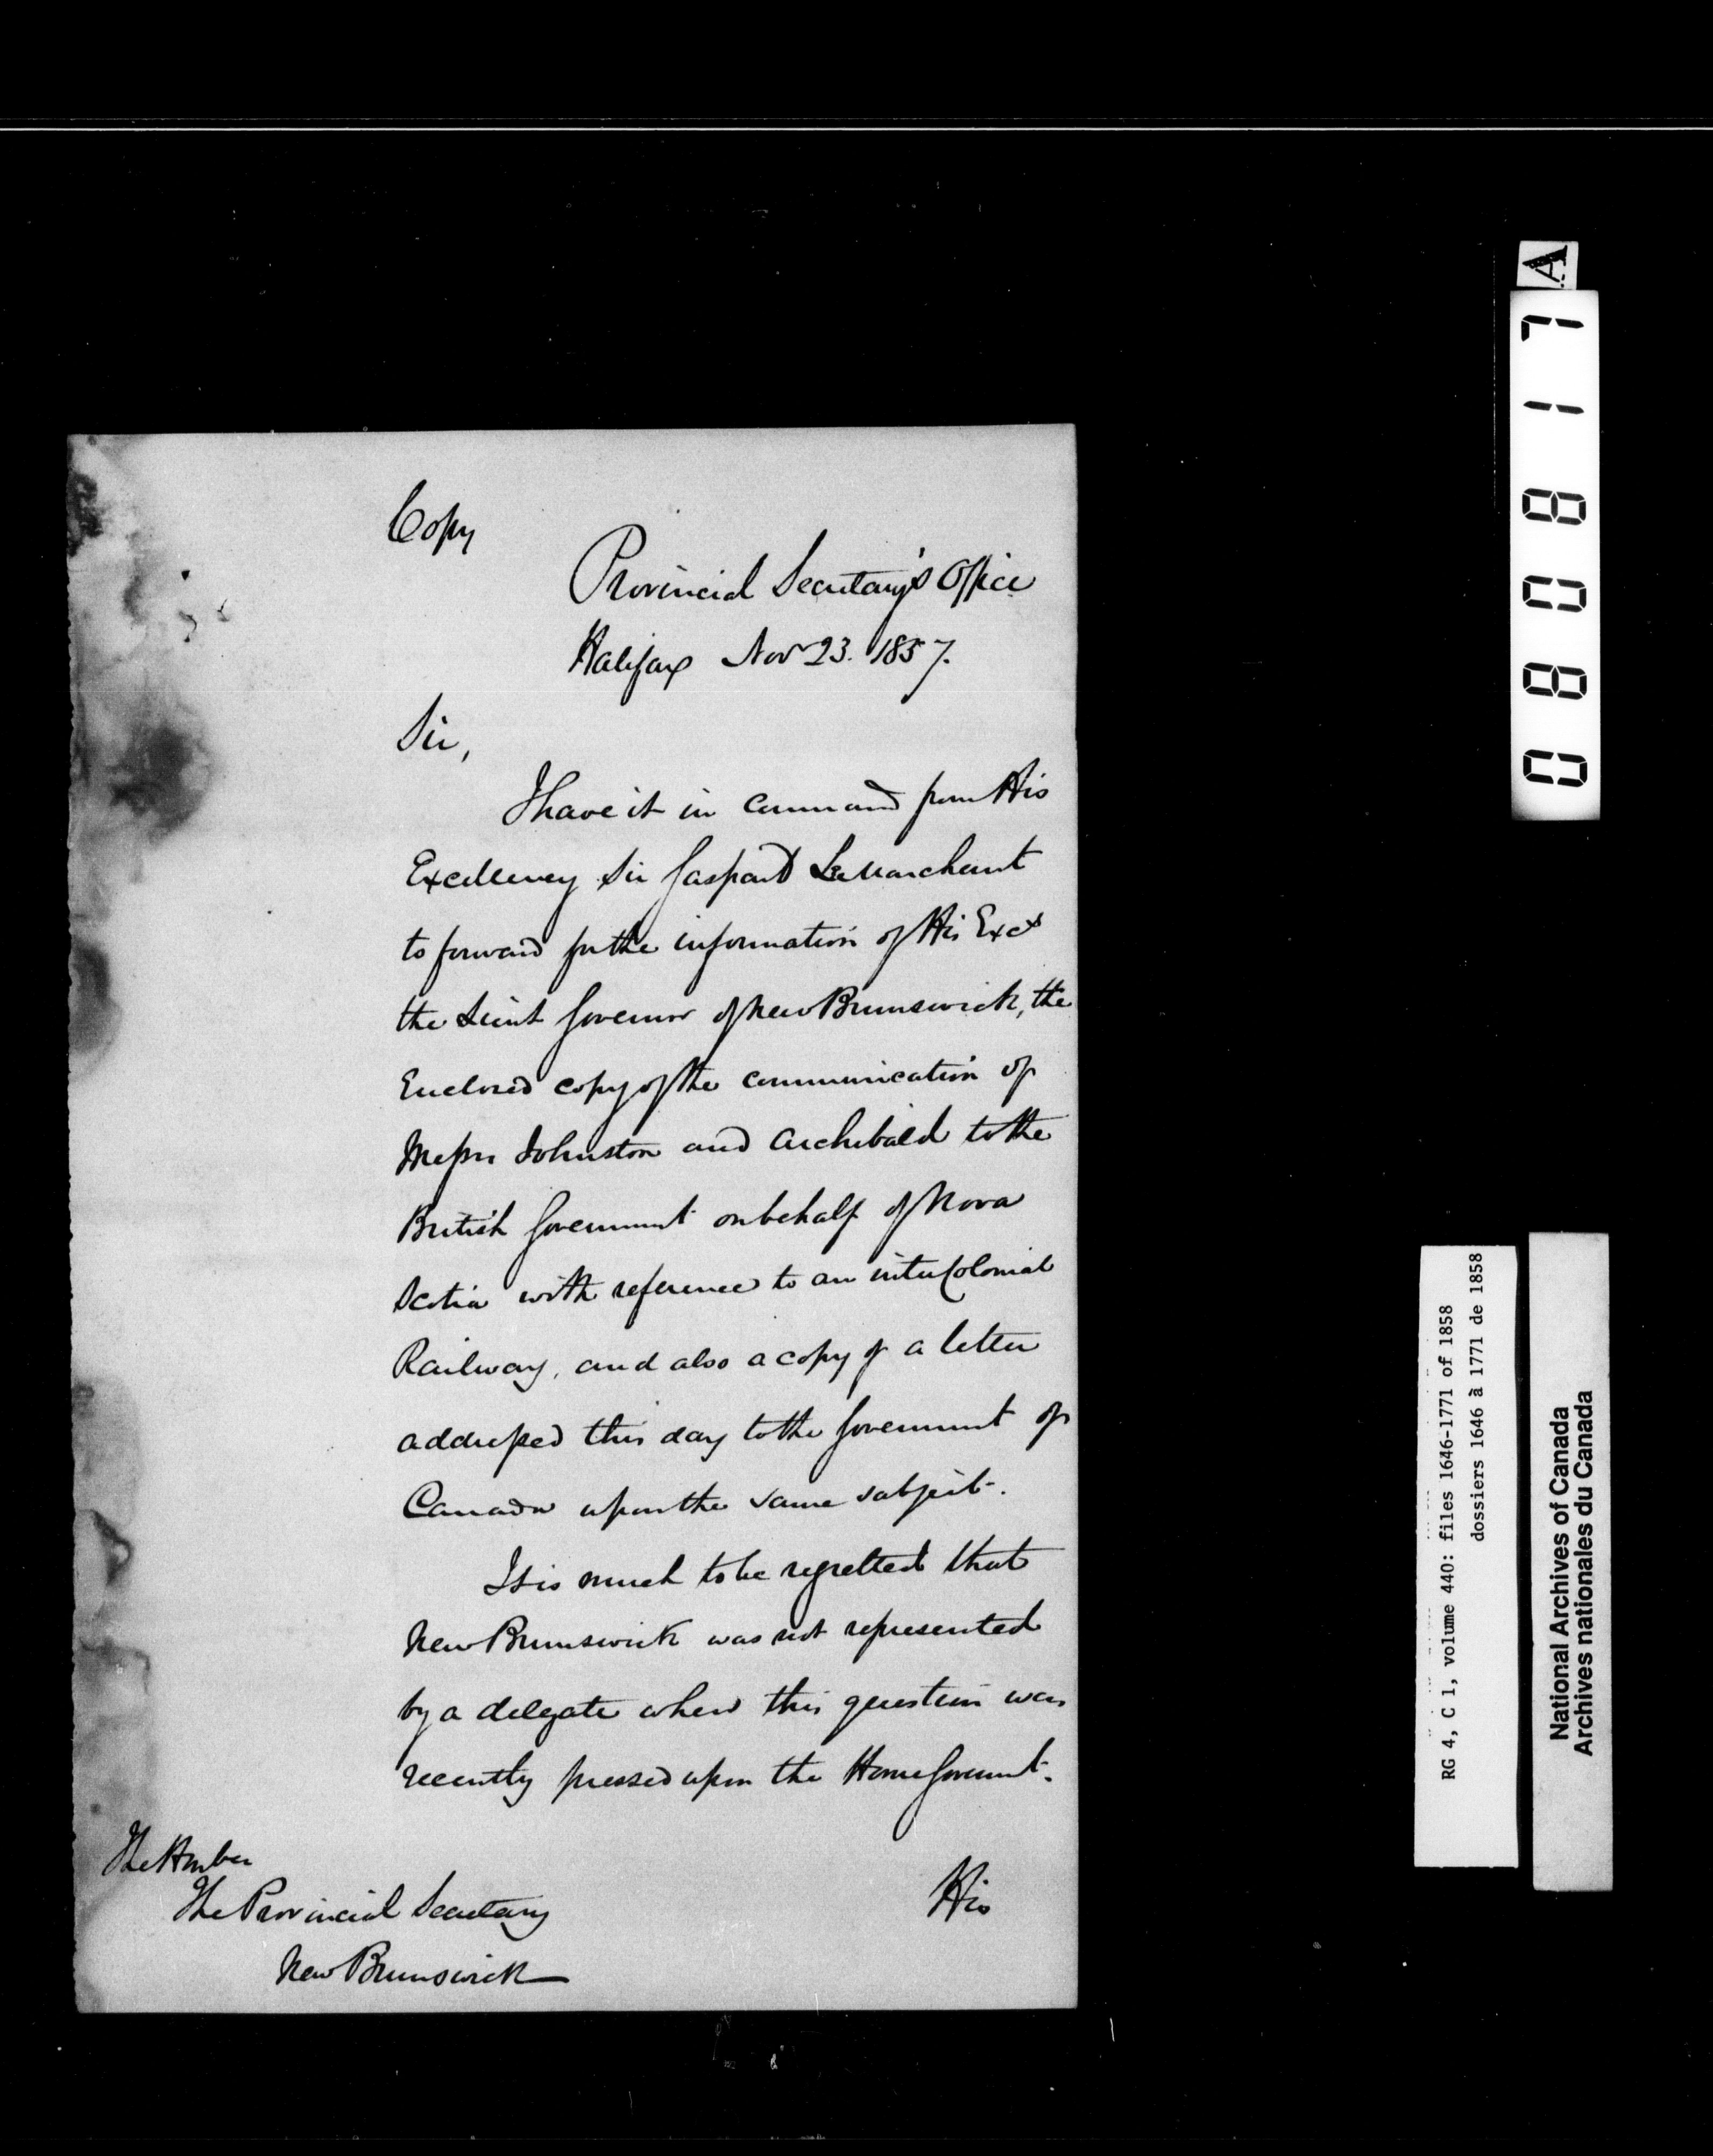 Copy
Provincial Secretary's Office
Halifax Nov 23. 1857.
Sir,
I have it in command from His
Excellency Sir Gaspard LeMarchant
to forward for the information of His Excy
the Lieut Governor of New Brunswick, the
Enclosed copy of the communication of
Messrs Johnston and Archibald to the
British Government on behalf of Nova
Scotia with reference to an interColonial
Railway, and also a copy of a letter
addressed this day to the Government of
Canada upon the same subject.
It is much to be regretted that
New Brunswick was not represented
by a delegate when this question was
recently pressed upon the Home Goverment.
His
The Honble
The Provincial Secretary
New Brunswick
080817
A
RG 4, C 1, volume 440: files 1646-1771 of 1858
dossiers 1646 à 1771 de 1858
National Archives of Canada
Archives nationales du Canada